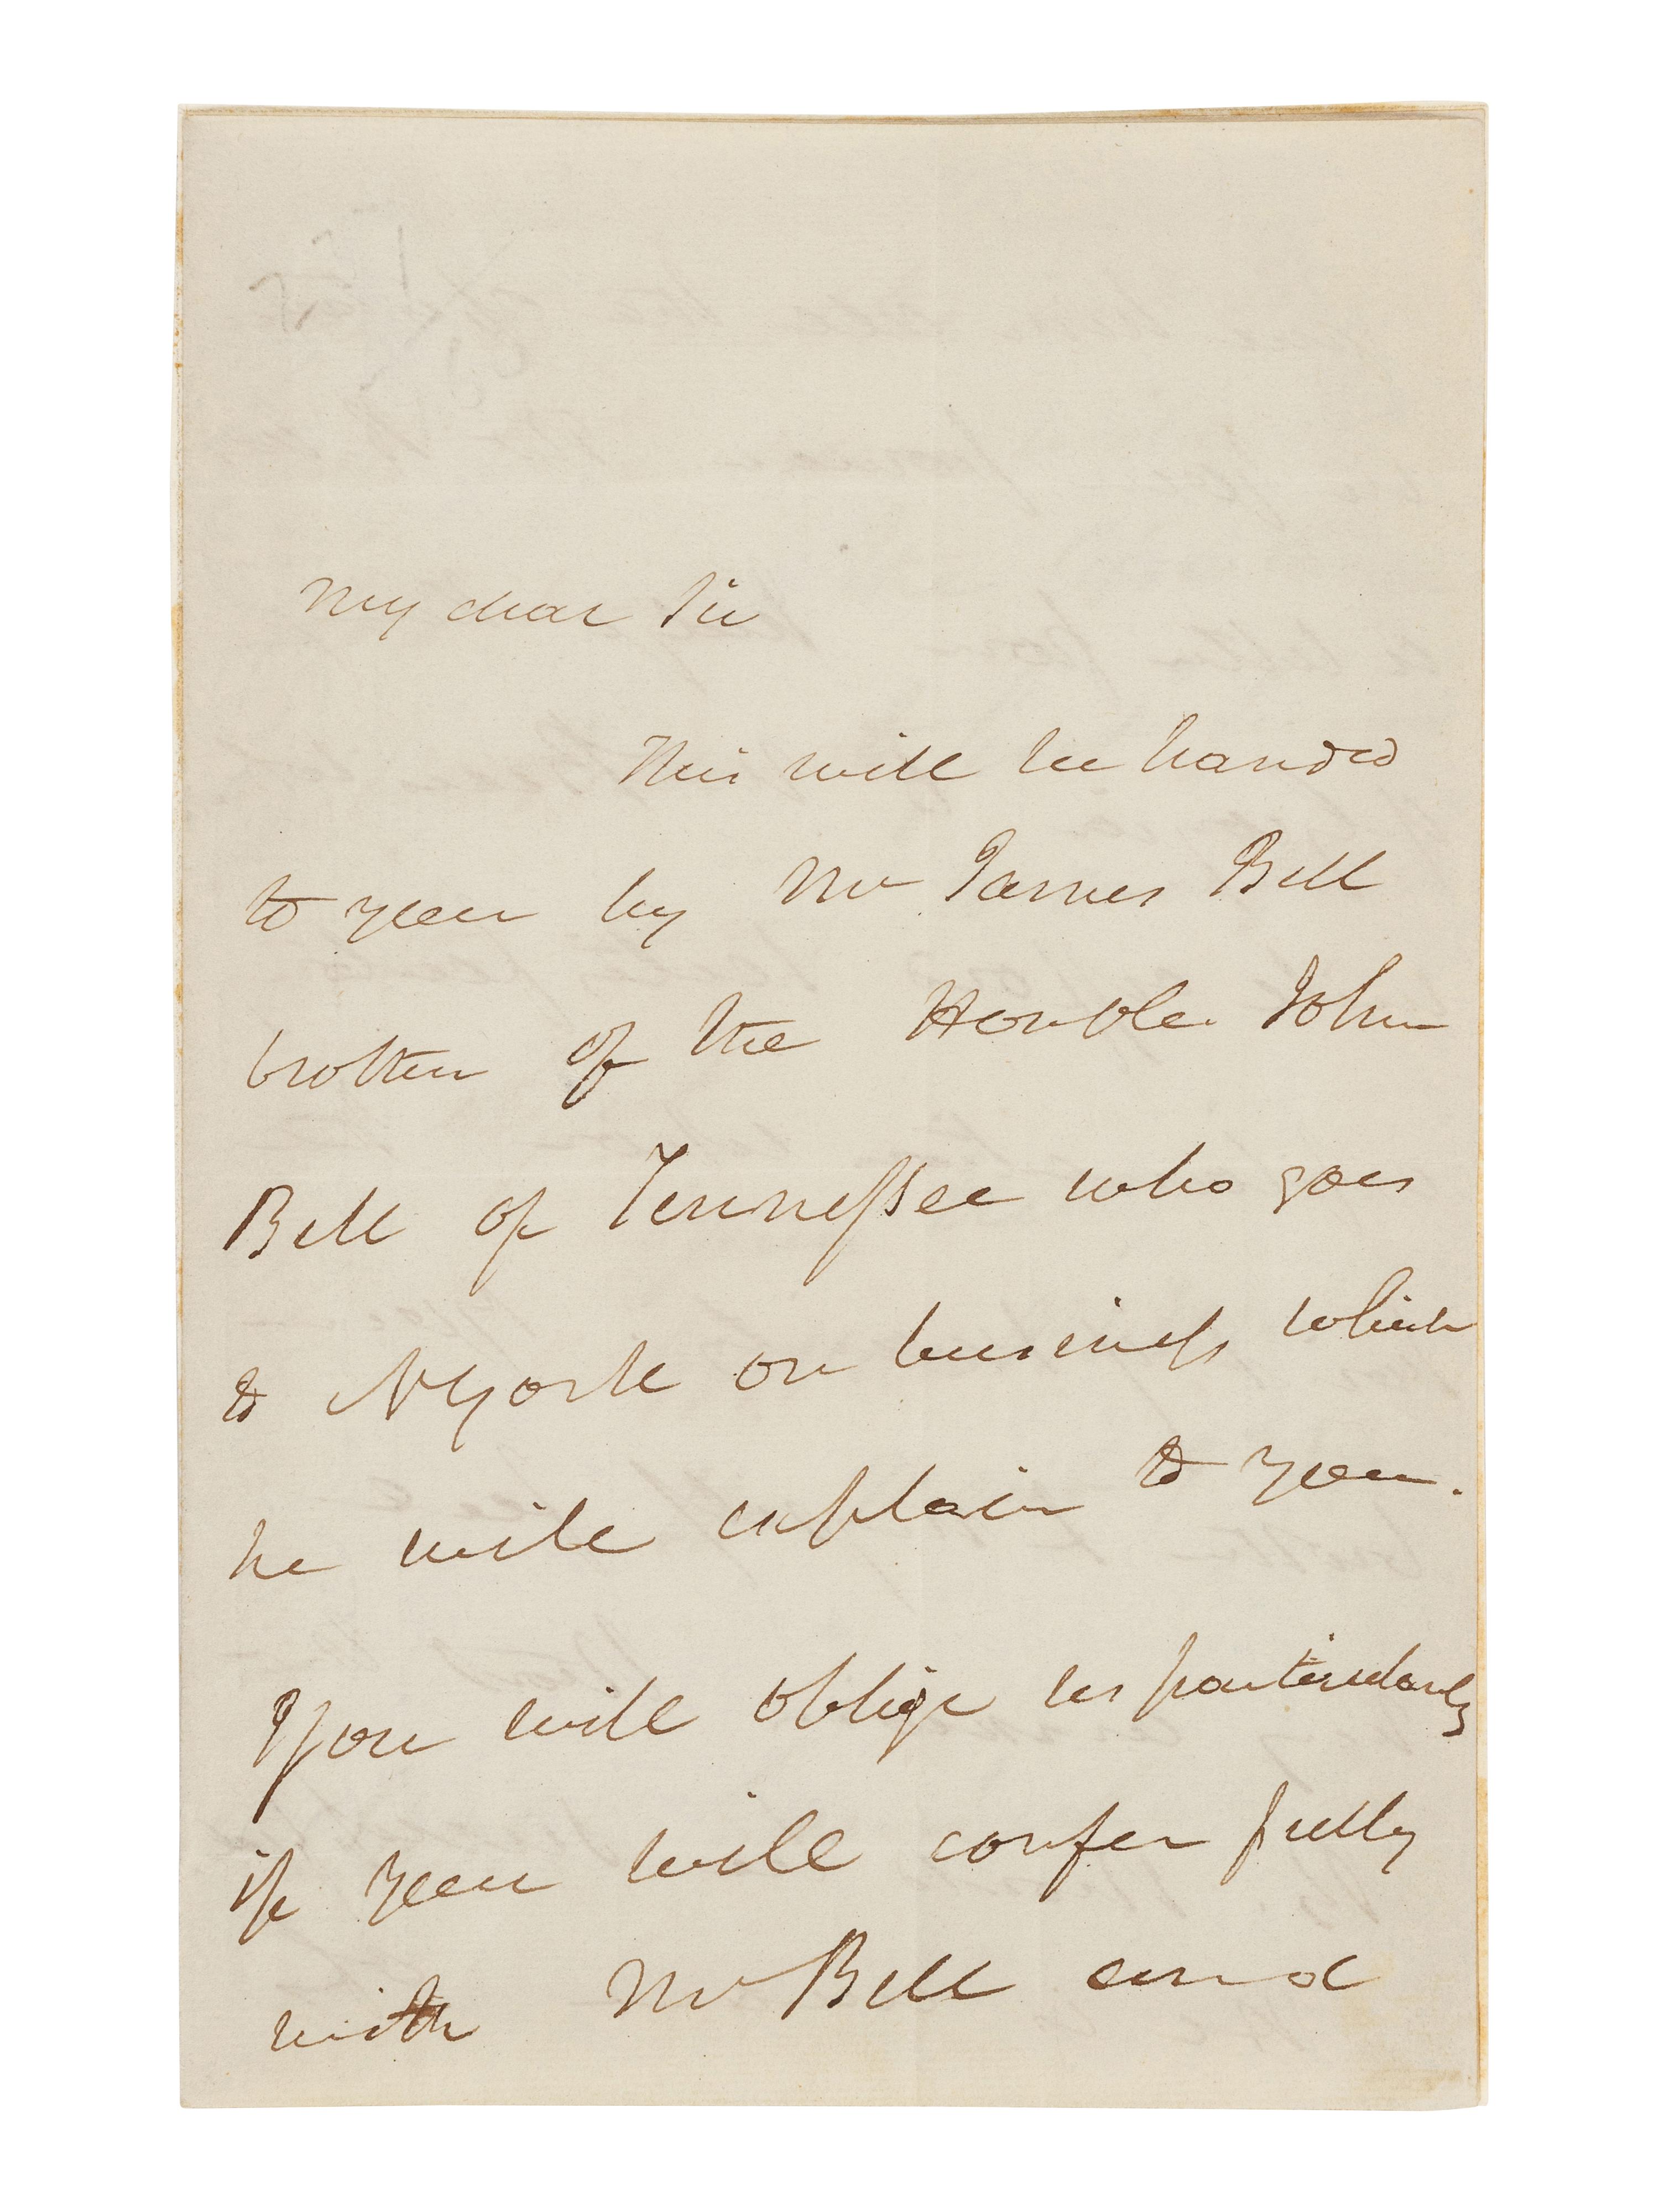 My dear Sir
This will be handed
to you by Mr James Bell
brother of the Honble. John
Bell of Tennessee who goes
to NYork on business which
he will explain to you.
You will oblige us particularly
if you will confer fully
with Mr Bell and